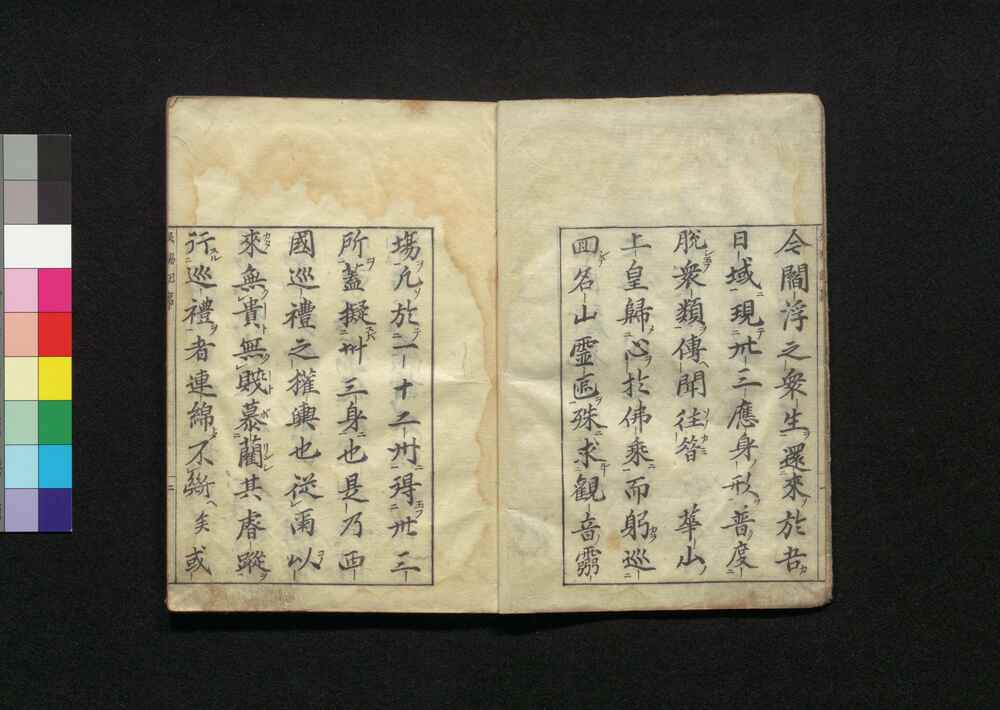 令閻浮之衆生還來於吾
日域現卅三應身形普度
脫衆類傳聞往昝華山
上皇歸心於佛乘而躬巡
回名山靈區殊求觀音霛
塲凡於一十二州得卅三
所蓋擬卅三身也是乃西
國巡禮之攉輿也從爾以
來無貴無賤慕藺其睿蹤
行巡禮者連綿不斷矣或